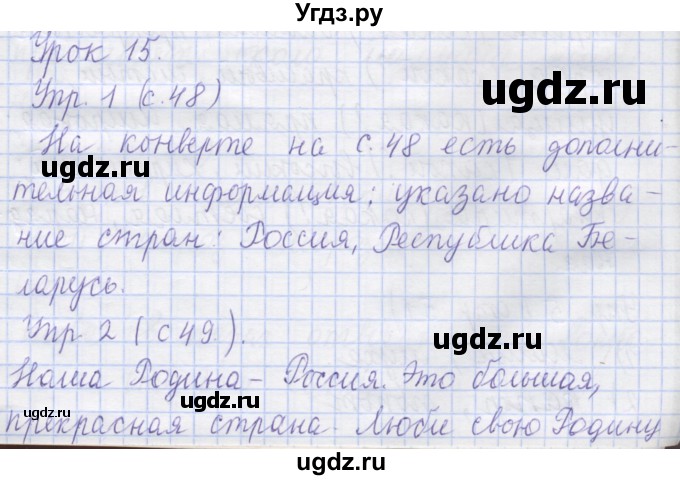 Угдз.ру
Урок 15.
Упр. 1 (с.48)
ugdz.ru
На конверте на с.48 есть дополни-
ugdz.ru
тельная информация: указано назва-
ugdz.ru
ние стран: Россия, Республика Бе-
ugdz.ru
ларусь.
ugdz.ru
Упр 2 (с 49.).
ugdz.ru
Наша Родина - Россия. Это большая,
ugdz.ru
прекрасная страна. Люби свою Родину
ugdz.ru